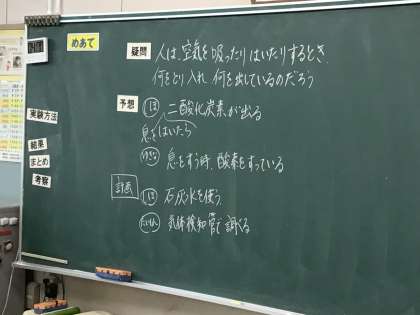 めあて
疑問 人は、空気を吸ったりはいたりするとき、
何をとり入れ、何を出しているのだろう
予想 二酸化炭素が出る
息をはいたら
息をすう時、酸素をすっている
計画 石灰水を使う
気体検知管で調べる
実験方法
結果
まとめ
考察